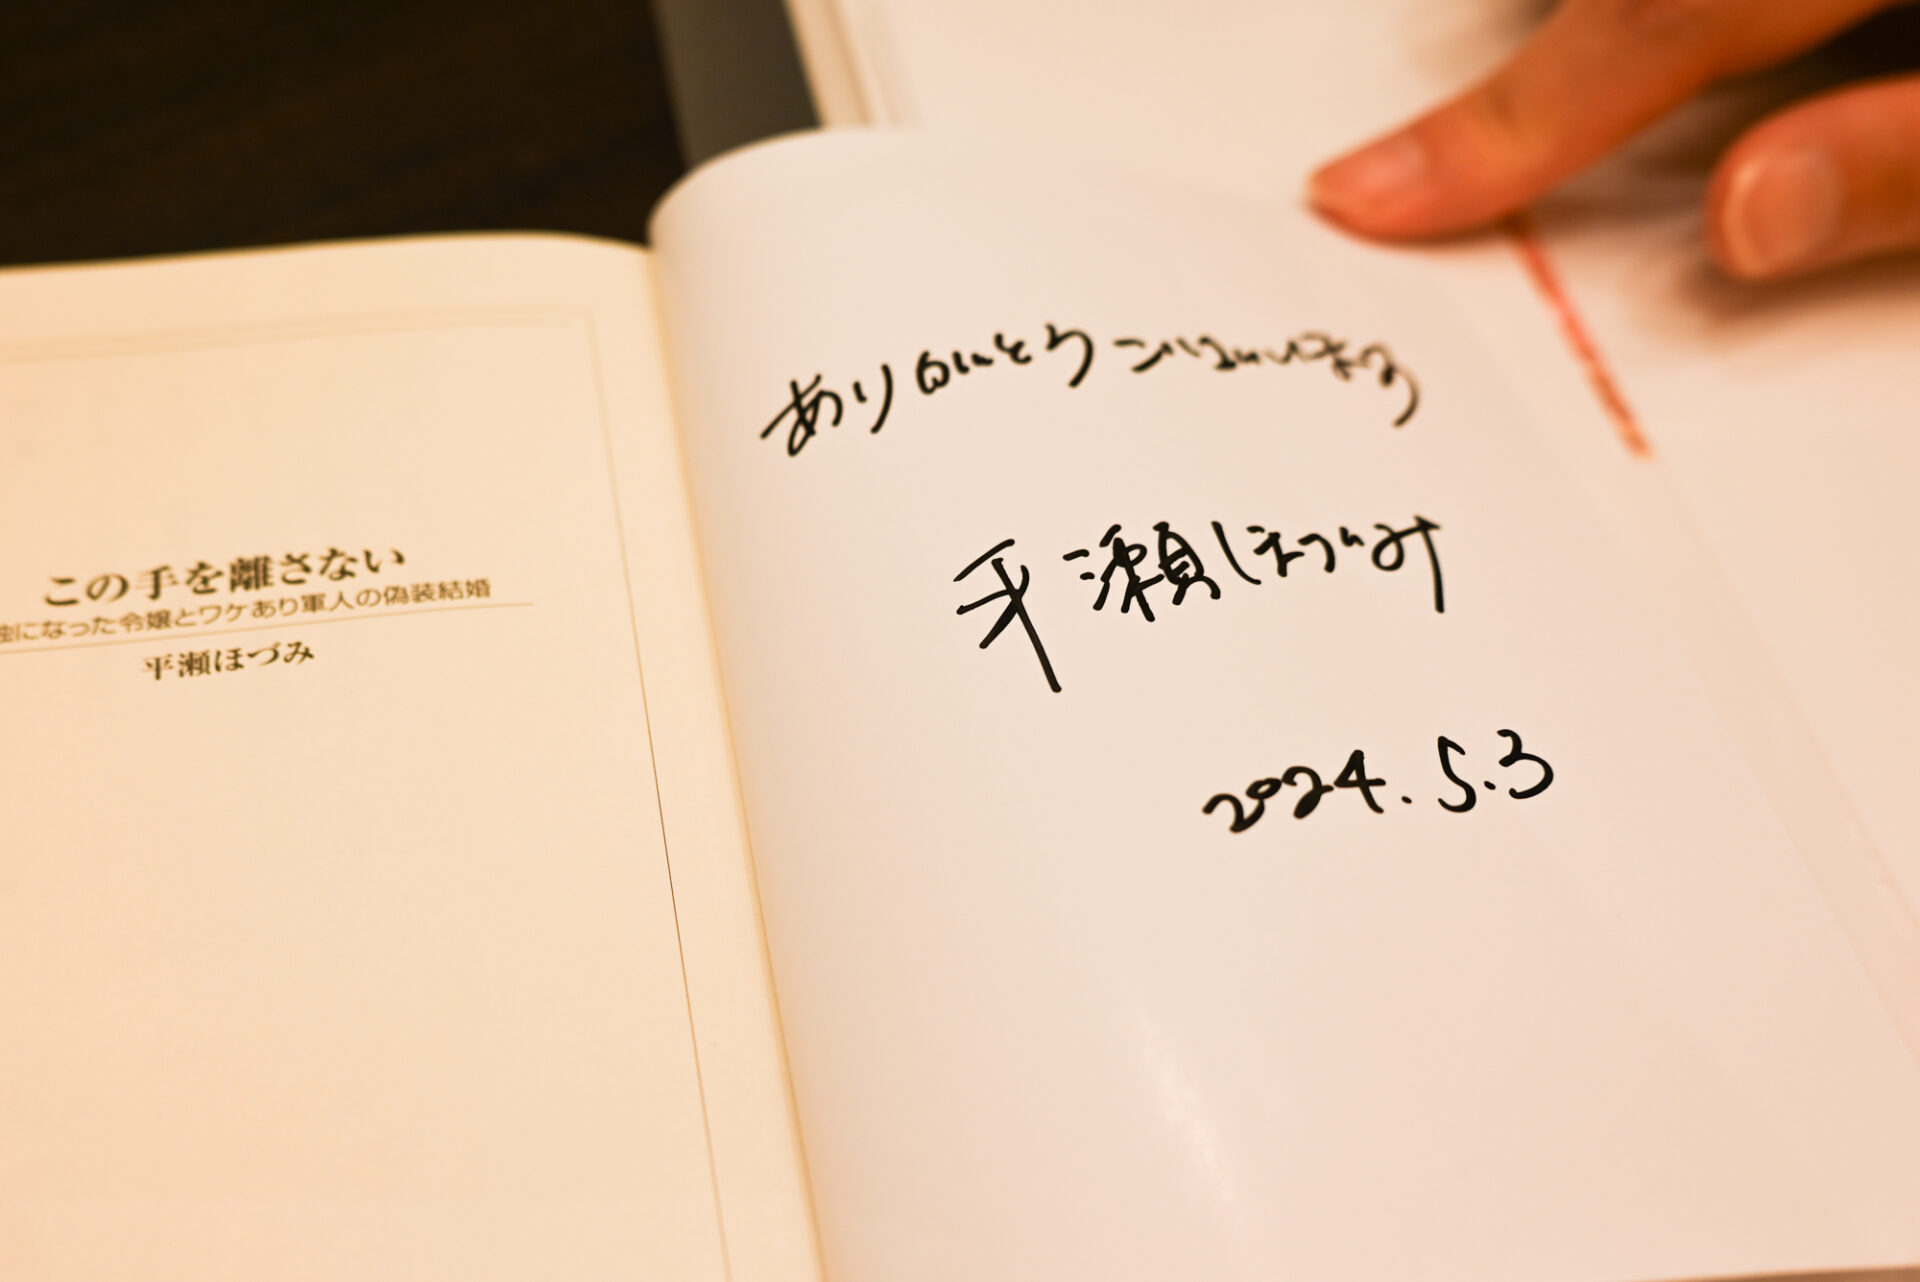 この手を離さない
独になった令嬢とワケあり軍人の偽装結婚
平瀬ほづみ
ありがとうございます
平瀬ほづみ
2024.5.3